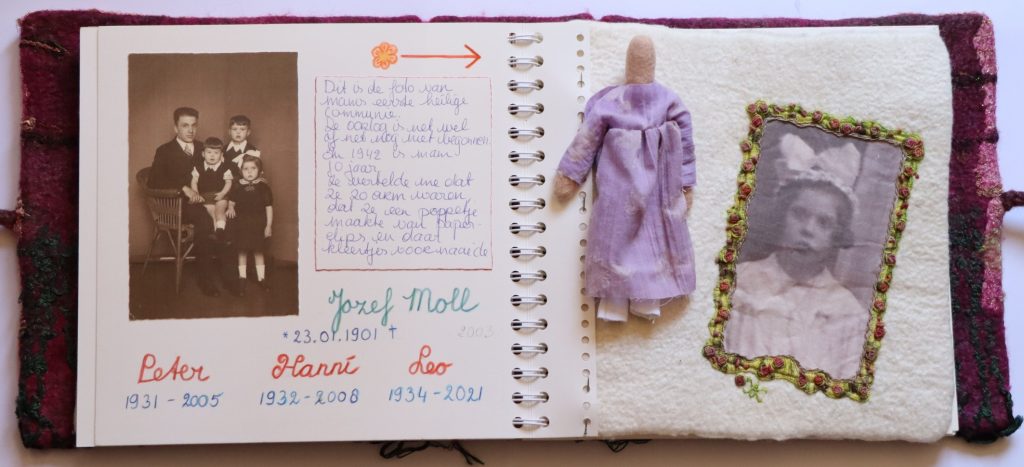 Dit is de foto van
mams eerste heilige
Communie.
De oorlog is net wel
of net nog niet begonnen.
In 1942 is mam
10 jaar.
Ze vertelde me dat
ze zo arm waren
dat ze een poppetje
maakte van paper-
clips en daar
kleertjes voor naaide
Jozef Moll
* 23.01.1901 † 2003
Peter Hanni Leo
1931 - 2005 1932 - 2008 1934 - 2021